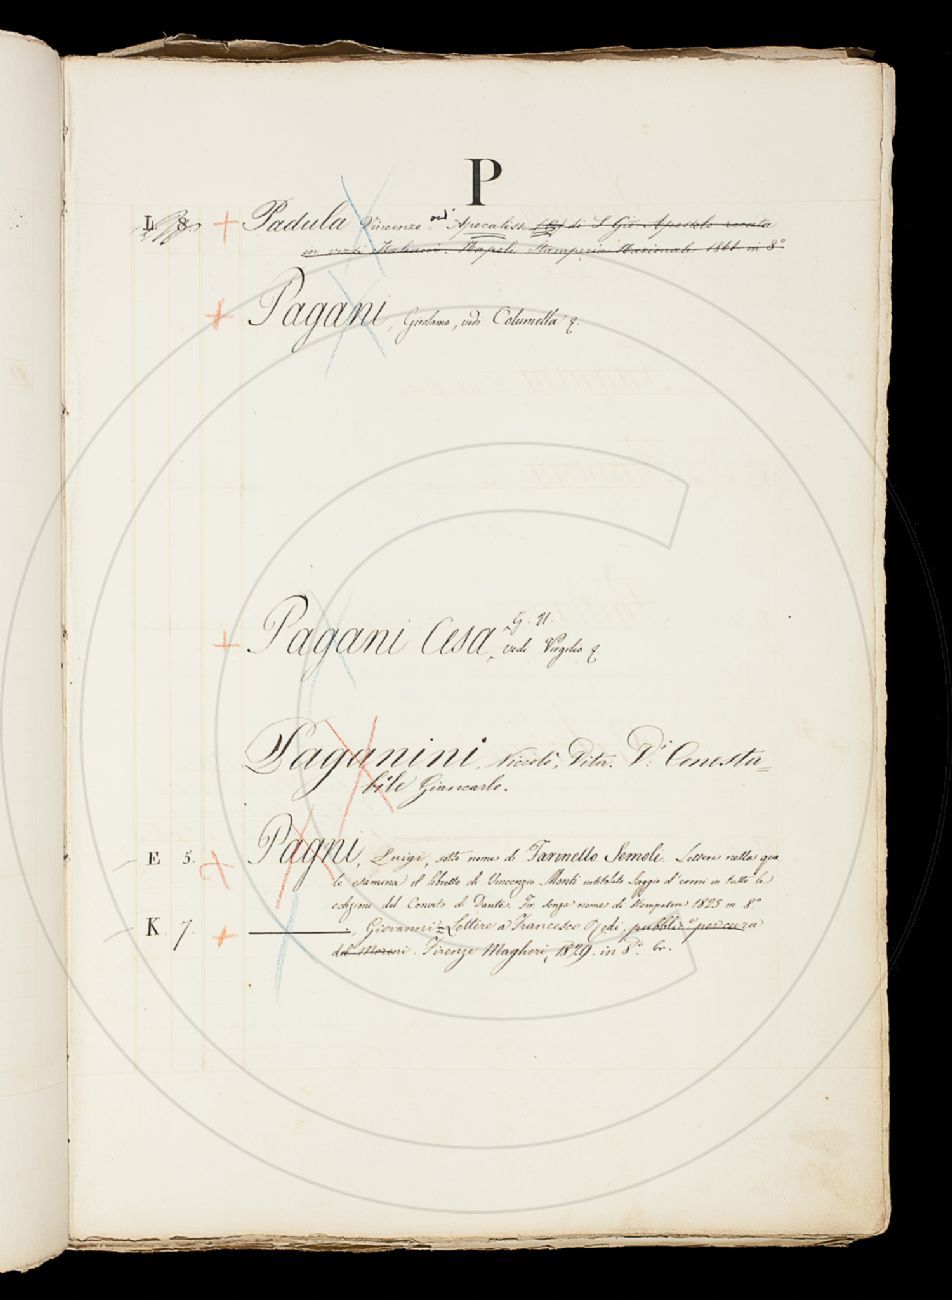 P
L 8. Padula Vincenzo ved: Apocalisse di S. Gio. Apostolo recata
in versi Italiani. Napoli Stamperia Nazionale 1861 in 8.°
Pagani, Girolamo, vedi Columella
Pagani Cesa, G. U.
vedi Virgilio
Paganini Niccolò, Vita. V.i Conesta=
bile Giancarlo.
E 5. Pagni, Luigi, sotto nome di Farinello Semoli. Lettere nella qua
le esamina il libretto di Vincenzo Monti intitolato Saggio d'errori in tutte le
edizioni del Convito di Dante. Fir. senza nome di Stampatore 1825 in 8.°
K 7. Giovanni = Lettere a Francesco Redi, pubbli: per cura
del Moreni. Firenze Magheri, 1829. in 8.°